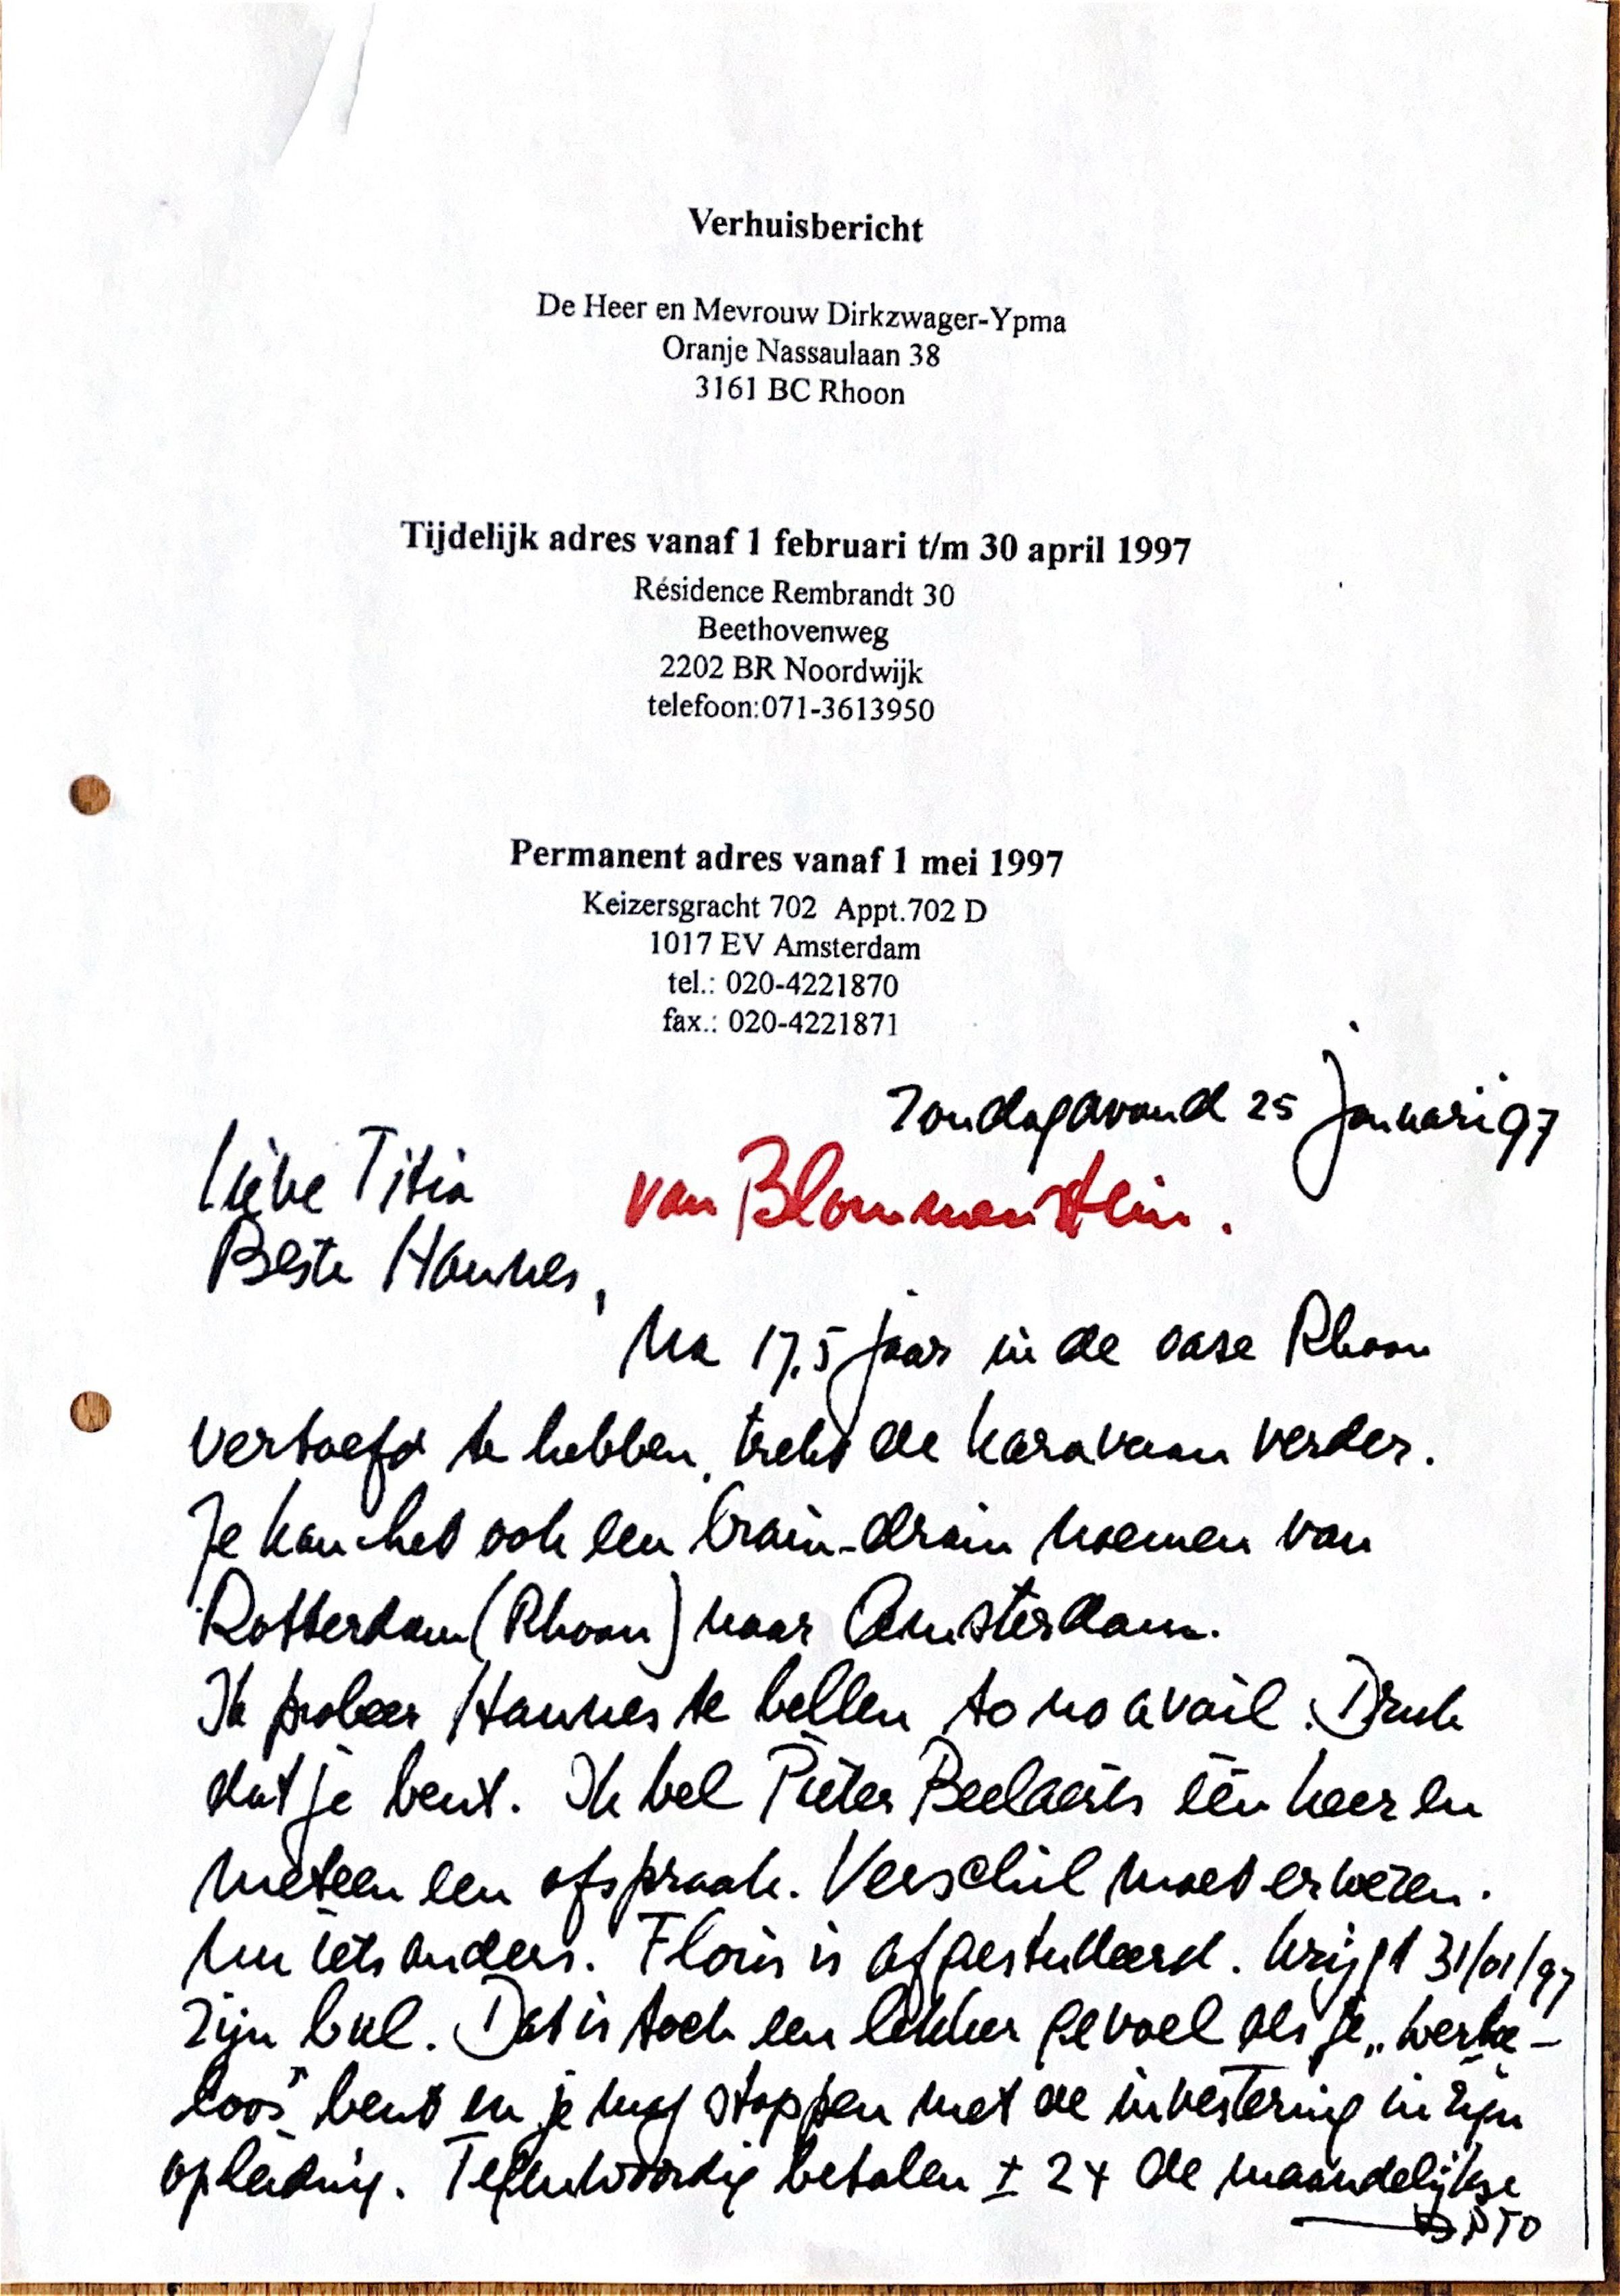 Verhuisbericht
De Heer en Mevrouw Dirkzwager-Ypma
Oranje Nassaulaan 38
3161 BC Rhoon
Tijdelijk adres vanaf 1 februari t/m 30 april 1997
Résidence Rembrandt 30
Beethovenweg
2202 BR Noordwijk
telefoon:071-3613950
Permanent adres vanaf 1 mei 1997
Keizersgracht 702 Appt.702 D
1017 EV Amsterdam
tel.: 020-4221870
fax.: 020-4221871
Zondagavond 25 januari 97
Lieve Titia
van Blommenstein.
Beste Hannes,
Na 17,5 jaar in de oase Rhoon
vertoefd te hebben, trekt de karavaan verder.
Je kan het ook een brain-drain noemen van
Rotterdam (Rhoon) naar Amsterdam.
Ik probeer Hannes te bellen to no avail. Druk
dat je bent. Ik bel Pieter Beelaerts één keer en
meteen een afspraak. Verschil moet er wezen.
Nu iets anders. Floris is afgestudeerd. Krijgt 31/01/97
zijn bul. Dat is toch een lekker gevoel als je „werke-
loos" bent en je mag stoppen met de investering in zijn
opleiding. Tegenwoordig betalen ± 2x de maandelijkse
PTO